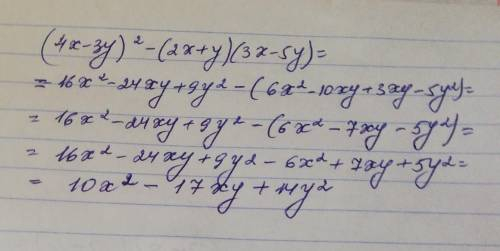 (4x-3y)² -(2x+y)(3x-5y)=
= 16x² -24xy+9y² - (6x²-10xy+3xy-5y²)=
= 16x² -24xy+9y² -(6x²-7xy -5y²)=
= 16x² -24xy+9y² - 6x²+7xy+5y²=
= 10x² - 17xy +14y²